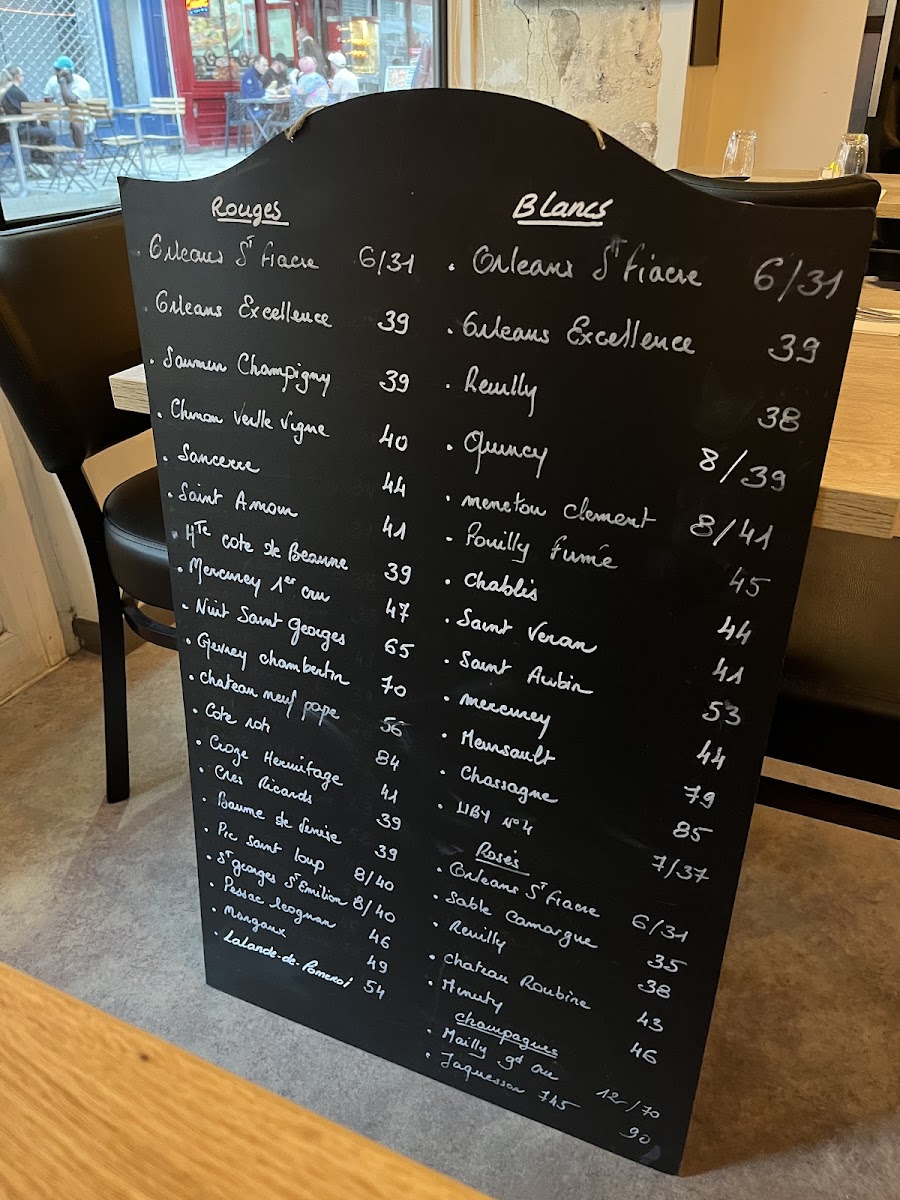 Rouges
. Orleans St fiacre 6/31
. Orleans Excellence 39
. Saumur Champigny 39
. Chinon Veille Vigne 40
. Sancerre 44
. Saint Amour 41
. Hte cote de Beaune 39
. Mercurey 1er cru 47
. Nuit Saint Georges 65
. Gevrey chambertin 70
. chateau neuf pape 56
. Cote roti 84
. Croze Hermitage 41
. Cres Ricards 39
. Baume de Venise 39
. Pic saint loup 8/40
. St georges St Emilion 8/40
. Pessac leognan 46
. Margaux 49
. Lalande-de-Pomerol 54
Blancs
. Orleans St fiacre 6/31
. Orleans Excellence 39
. Reuilly 38
. Quincy 8/39
. menetou clement 8/41
. Pouilly fumé 45
. chablis 44
. Saint Veran 41
. Saint Aubin 53
. mercurey 44
. Meursault 79
. Chassagne 85
. UBY N°4 7/37
Rosés
. Orleans St fiacre 6/31
. Sable Camargue 35
. Reuilly 38
. Chateau Roubine 43
. Minuty 46
champagnes
. Mailly gd cru 12/70
. Jaquesson 745 90